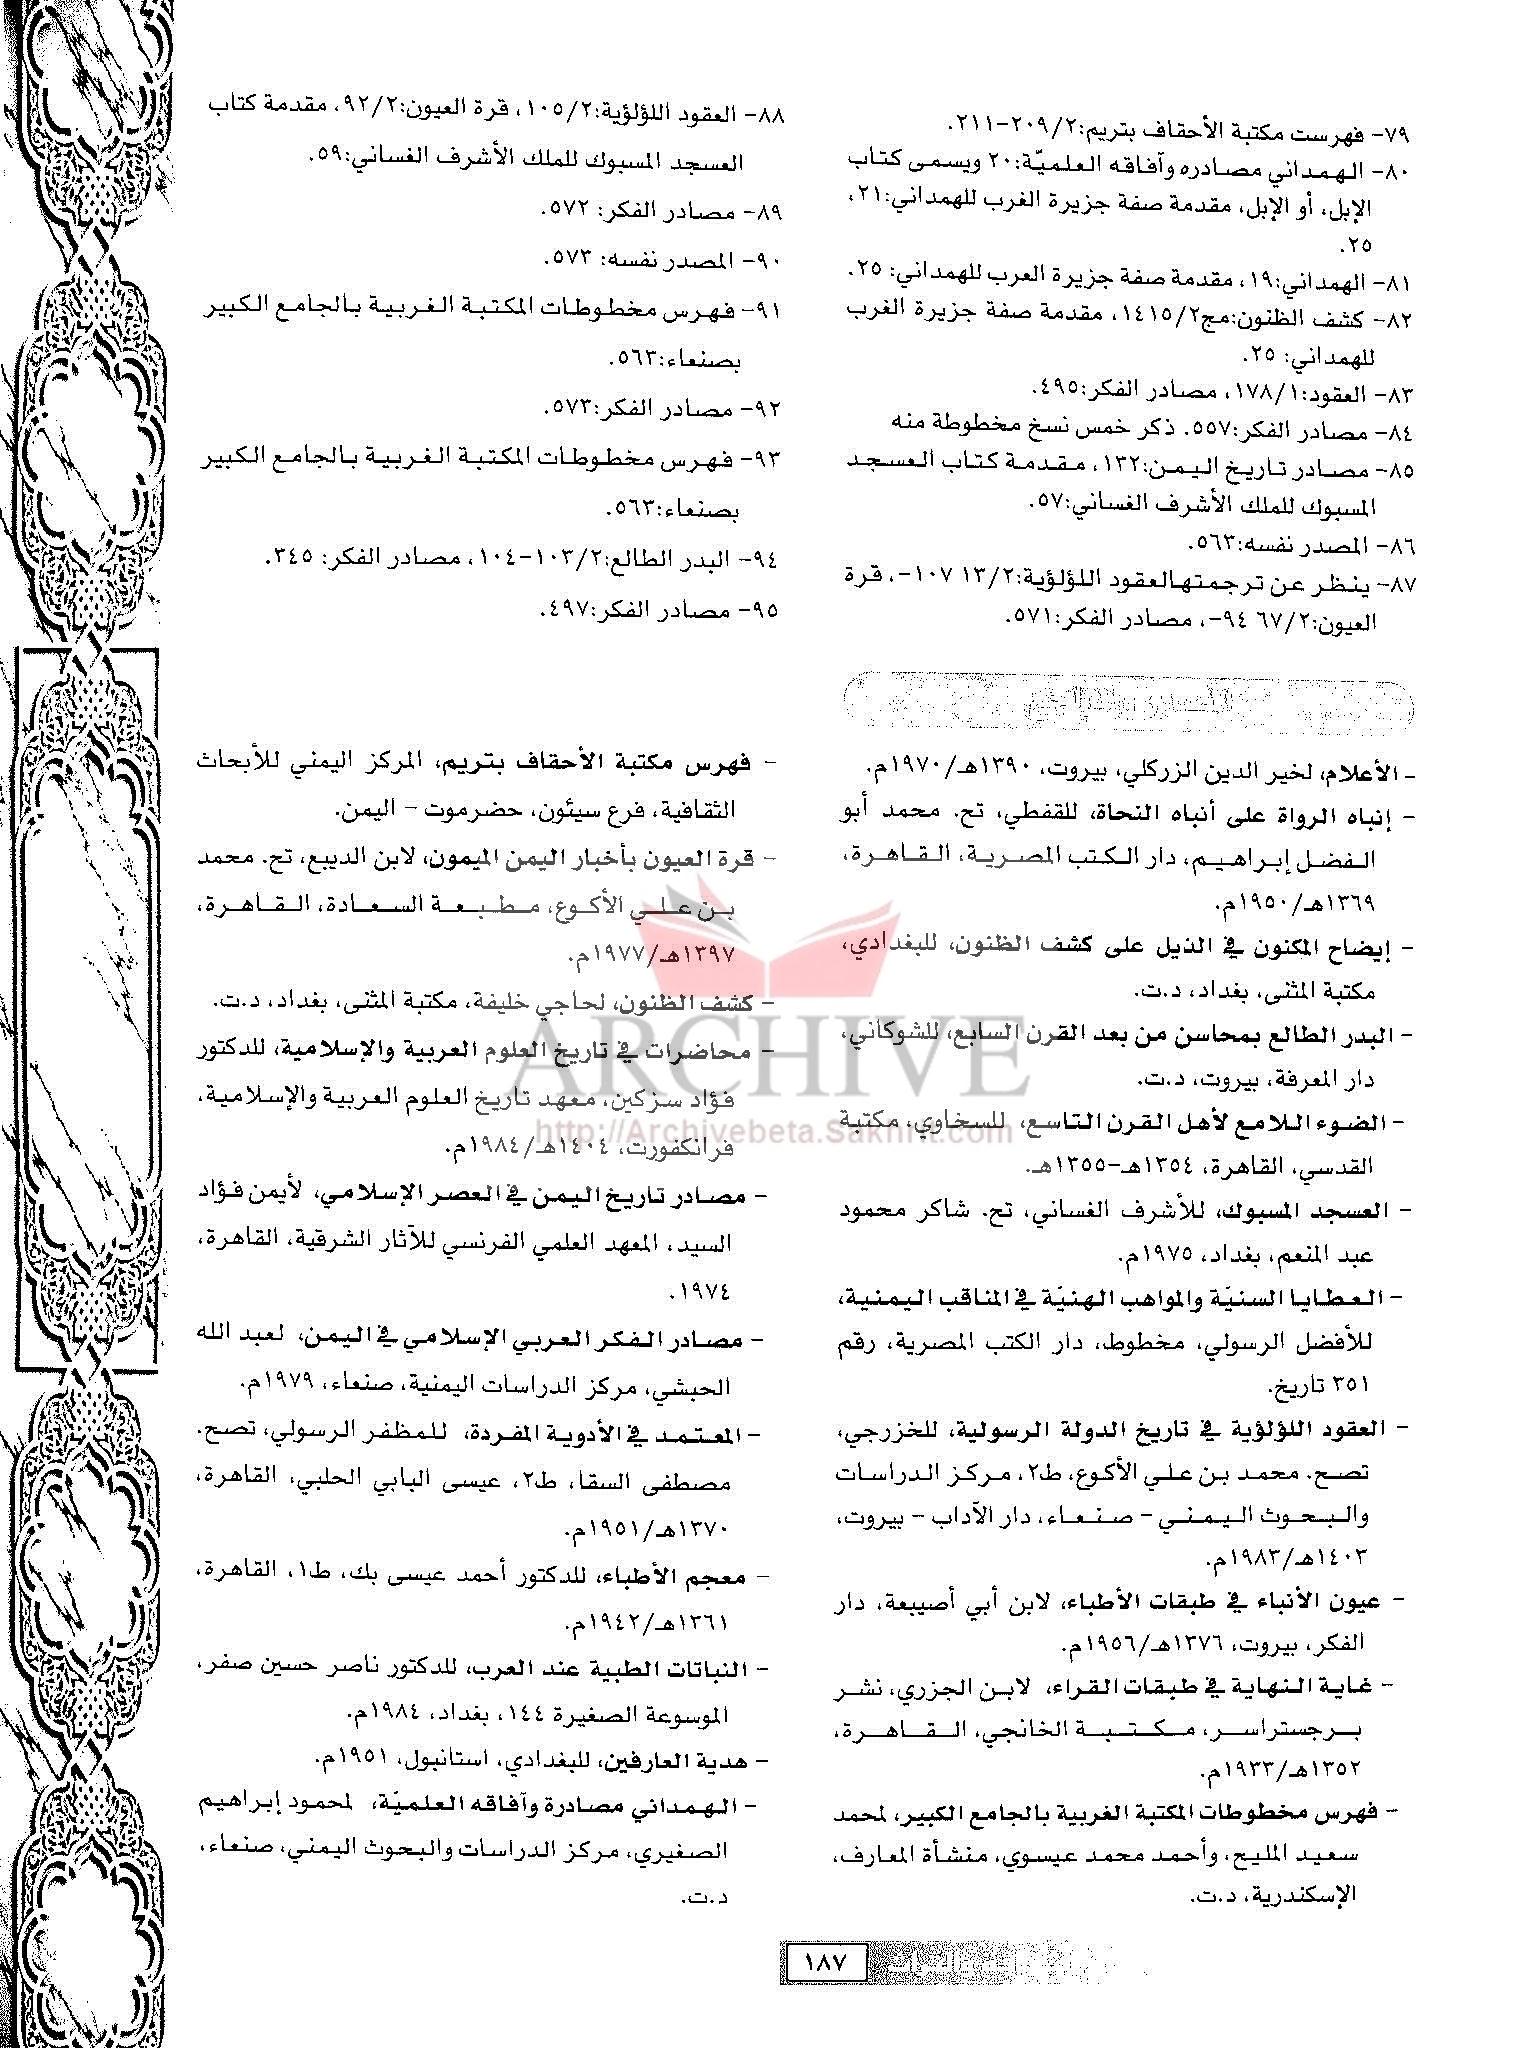 ٧٩- فهرست مكتبة الأحقاف بتريم:٢٠٩/٢-٢١١.
٨٠- الهمداني مصادره وآفاقه العلميّة:٢٠ ويسمى كتاب
الإبل، أو الإبل، مقدمة صفة جزيرة الغرب للهمداني:٢١،
٢٥.
٨١- الهمداني:١٩، مقدمة صفة جزيرة العرب للهمداني: ٢٥.
٨٢- كشف الظنون:مج١٤١٥/٢، مقدمة صفة جزيرة الغرب
للهمداني: ٢٥.
٨٣- العقود:١٧٨/١، مصادر الفكر:٤٩٥.
٨٤- مصادر الفكر:٥٥٧. ذكر خمس نسخ مخطوطة منه
٨٥- مصادر تاريخ اليمن:١٣٢، مقدمة كتاب العسجد
المسبوك للملك الأشرف الغساني:٥٧.
٨٦- المصدر نفسه:٥٦٣.
٨٧- ينظر عن ترجمتهالعقود اللؤلؤية:١٣/٢ ١٠٧-، قرة
العيون:٦٧/٢ ٩٤-، مصادر الفكر:٥٧١.
٨٨- العقود اللؤلؤية:١٠٥/٢، قرة العيون:٩٢/٢، مقدمة كتاب
العسجد المسبوك للملك الأشرف الغساني:٥٩.
٨٩- مصادر الفكر: ٥٧٢.
٩٠- المصدر نفسه: ٥٧٣.
٩١- فهرس مخطوطات المكتبة الغربية بالجامع الكبير
بصنعاء:٥٦٣.
٩٢- مصادر الفكر:٥٧٣.
٩٣- فهرس مخطوطات المكتبة الغربية بالجامع الكبير
بصنعاء:٥٦٣.
٩٤- البدر الطالع:١٠٣/٢-١٠٤، مصادر الفكر: ٣٤٥.
٩٥- مصادر الفكر:٤٩٧.
المصادر والمراجع
- الأعلام، لخير الدين الزركلي، بيروت، ١٣٩٠هـ/١٩٧٠م.
- إنباه الرواة على أنباه النحاة، للقفطي، تح. محمد أبو
الفضل إبراهيم، دار الكتب المصرية، القاهرة،
١٣٦٩هـ/١٩٥٠م.
- إيضاح المكنون في الذيل على كشف الظنون، للبغدادي،
مكتبة المثنى، بغداد، د.ت.
- البدر الطالع بمحاسن من بعد القرن السابع، للشوكاني،
دار المعرفة، بيروت، د.ت.
- الضوء اللامع لأهل القرن التاسع، للسخاوي، مكتبة
القدسي، القاهرة، ١٣٥٤هـ-١٣٥٥هـ.
- العسجد المسبوك، للأشرف الغساني، تح. شاكر محمود
عبد المنعم، بغداد، ١٩٧٥م.
- العطايا السنيّة والمواهب الهنيّة في المناقب اليمنية،
للأفضل الرسولي، مخطوط، دار الكتب المصرية، رقم
٣٥١ تاريخ.
- العقود اللؤلؤية في تاريخ الدولة الرسولية، للخزرجي،
تصح. محمد بن علي الأكوع، ط٢، مركز الدراسات
والبحوث اليمني - صنعاء، دار الآداب - بيروت،
١٤٠٣هـ/١٩٨٣م.
- عيون الأنباء في طبقات الأطباء، لابن أبي أصيبعة، دار
الفكر، بيروت، ١٣٧٦هـ/١٩٥٦م.
- غاية النهاية في طبقات القراء، لابن الجزري، نشر
برجستراسر، مكتبة الخانجي، القاهرة،
١٣٥٢هـ/١٩٣٣م.
- فهرس مخطوطات المكتبة الغربية بالجامع الكبير، لمحمد
سعيد المليح، وأحمد محمد عيسوي، منشأة المعارف،
الإسكندرية، د.ت.
- فهرس مكتبة الأحقاف بتريم، المركز اليمني للأبحاث
الثقافية، فرع سيئون، حضرموت - اليمن.
- قرة العيون بأخبار اليمن الميمون، لابن الديبع، تح. محمد
بن علي الأكوع، مطبعة السعادة، القاهرة،
١٣٩٧هـ/١٩٧٧م.
- كشف الظنون، لحاجي خليفة، مكتبة المثنى، بغداد، د.ت.
- محاضرات في تاريخ العلوم العربية والإسلامية، للدكتور
فؤاد سزكين، معهد تاريخ العلوم العربية والإسلامية،
فرانكفورت، ١٤٠٤هـ/١٩٨٤م.
- مصادر تاريخ اليمن في العصر الإسلامي، لأيمن فؤاد
السيد، المعهد العلمي الفرنسي للآثار الشرقية، القاهرة،
١٩٧٤.
- مصادر الفكر العربي الإسلامي في اليمن، لعبد الله
الحبشي، مركز الدراسات اليمنية، صنعاء، ١٩٧٩م.
- المعتمد في الأدوية المفردة، للمظفر الرسولي، تصح.
مصطفى السقا، ط٢، عيسى البابي الحلبي، القاهرة،
١٣٧٠هـ/١٩٥١م.
- معجم الأطباء، للدكتور أحمد عيسى بك، ط١، القاهرة،
١٣٦١هـ/١٩٤٢م.
- النباتات الطبية عند العرب، للدكتور ناصر حسين صفر،
الموسوعة الصغيرة ١٤٤، بغداد، ١٩٨٤م.
- هدية العارفين، للبغدادي، استانبول، ١٩٥١م.
- الهمداني مصادرة وآفاقه العلميّة، لمحمود إبراهيم
الصغيري، مركز الدراسات والبحوث اليمني، صنعاء،
د.ت.
ARCHIVE
http://Archivebeta.Sakhrit.com
١٨٧